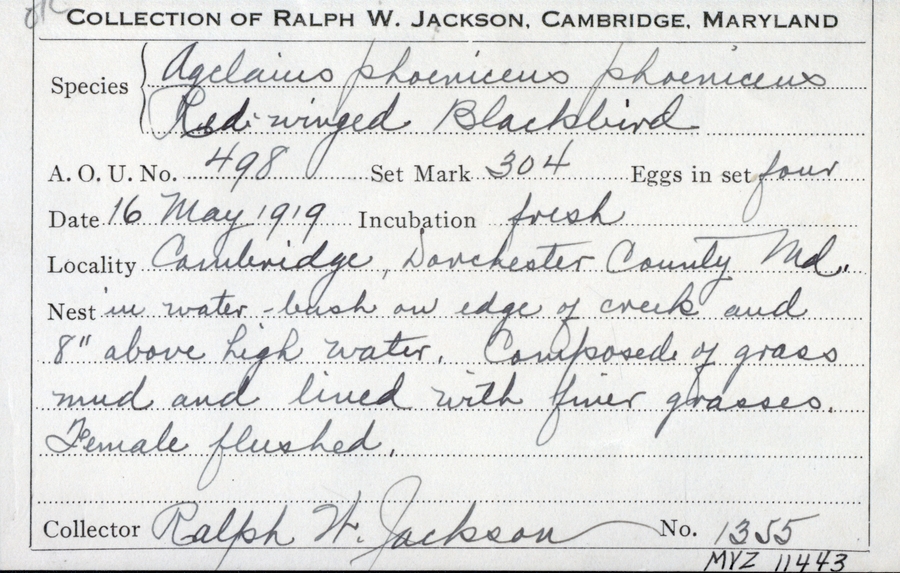 COLLECTION OF RALPH W. JACKSON, CAMBRIDGE, MARYLAND
Species Agelaius phoeniceus phoeniceus
Red-winged Blackbird
A. O. U. No. 498 Set Mark 304 Eggs in set four
Date 16 May 1919 Incubation fresh
Locality Cambridge, Dorchester County Md.
Nest in water-bush on edge of creek and
8" above high water. Composed of grass
mud and lined with finer grasses.
Female flushed.
Collector Ralph W. Jackson No. 1355
MVZ 11443